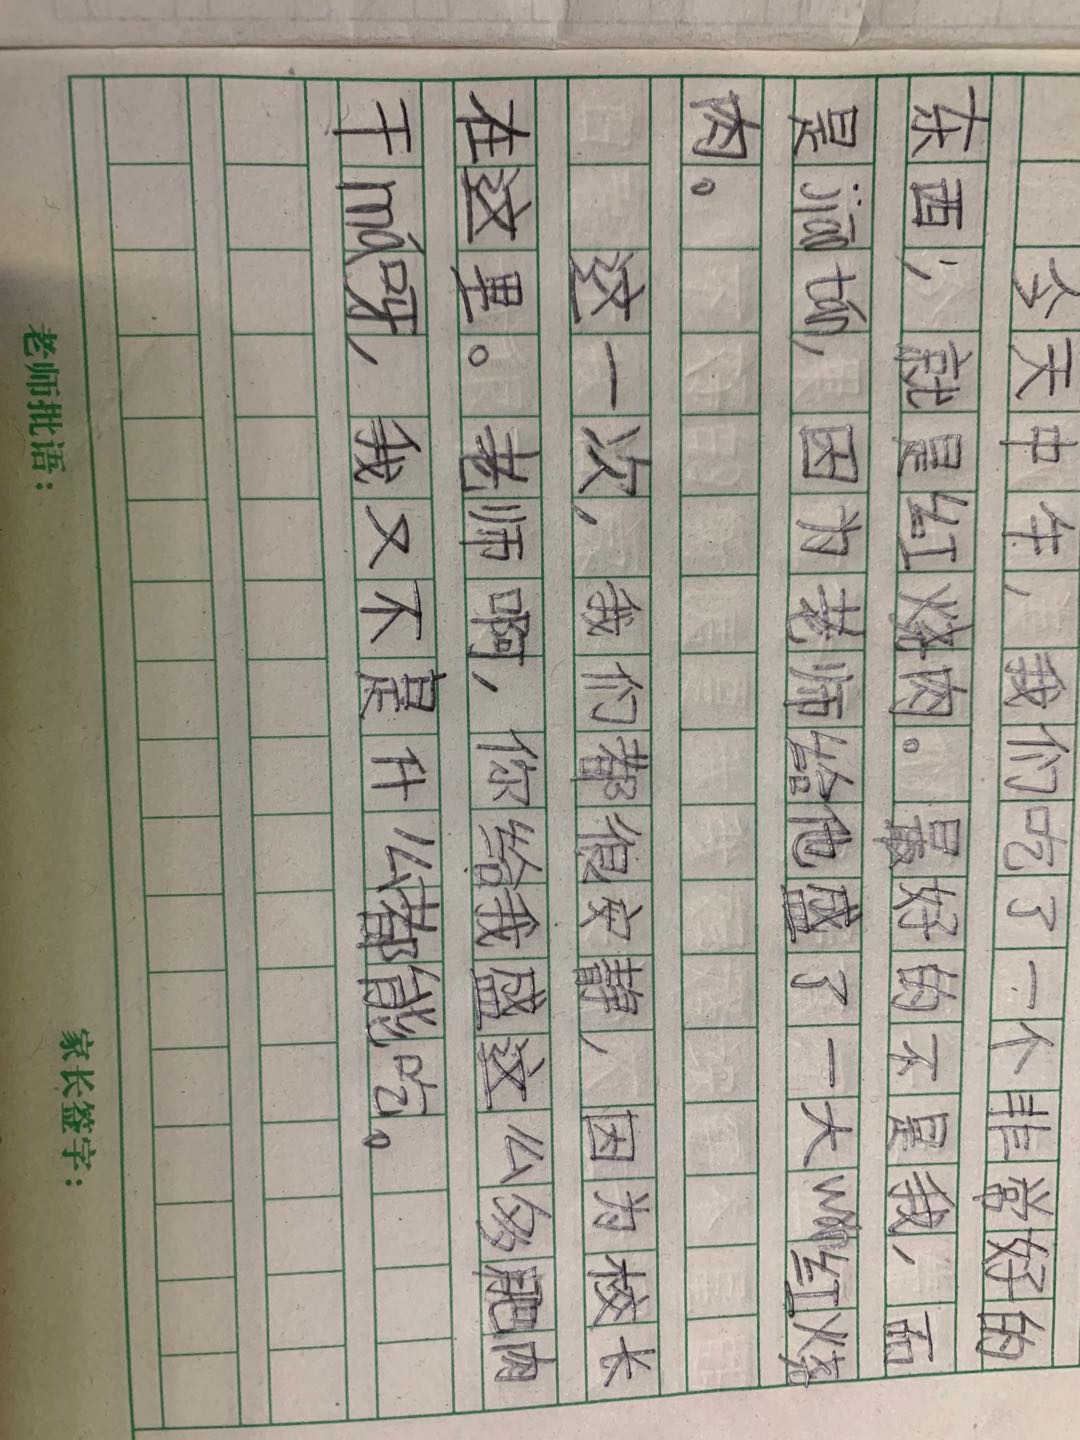 今天中午，我们吃了一个非常好的
东西，就是红烧肉。最好的不是我，而
是jiǎ tián，因为老师给他盛了一大wǎn红烧
肉。
这一次，我们都很安静，因为校长
在这里。老师啊，你给我盛这么多肥肉
干má呀，我又不是什么都能吃。
老师批语：
家长签字：